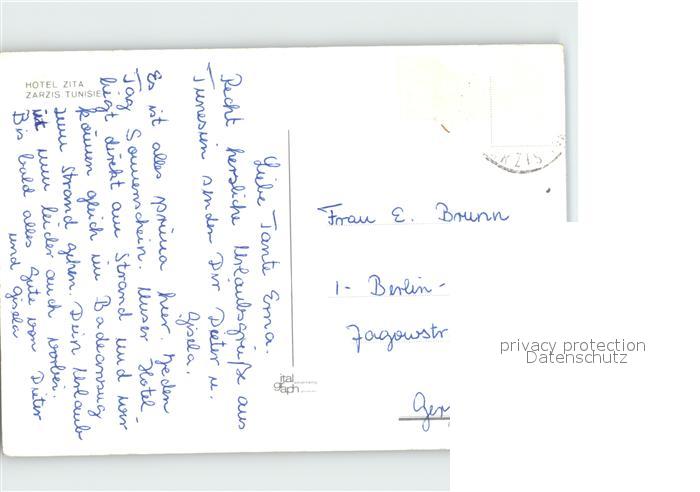 HOTEL ZITA
ZARZIS TUNISIE
Liebe Tante Erna.
Recht herzliche Urlaubsgrüße aus
Tunesien senden Dir Dieter u.
Gisela.
Es ist alles prima hier. Jeden
Tag Sonnenschein. Unser Hotel
liegt direkt am Strand und wir
können gleich im Badeanzug
zum Strand gehen. Dein Urlaub
ist nun leider auch vorbei.
Bis bald alles Gute von Dieter
und Gisela
ital
graph
RZIS
Frau E. Brunn
1- Berlin-
Jagowstr
Ger
privacy protection
Datenschutz